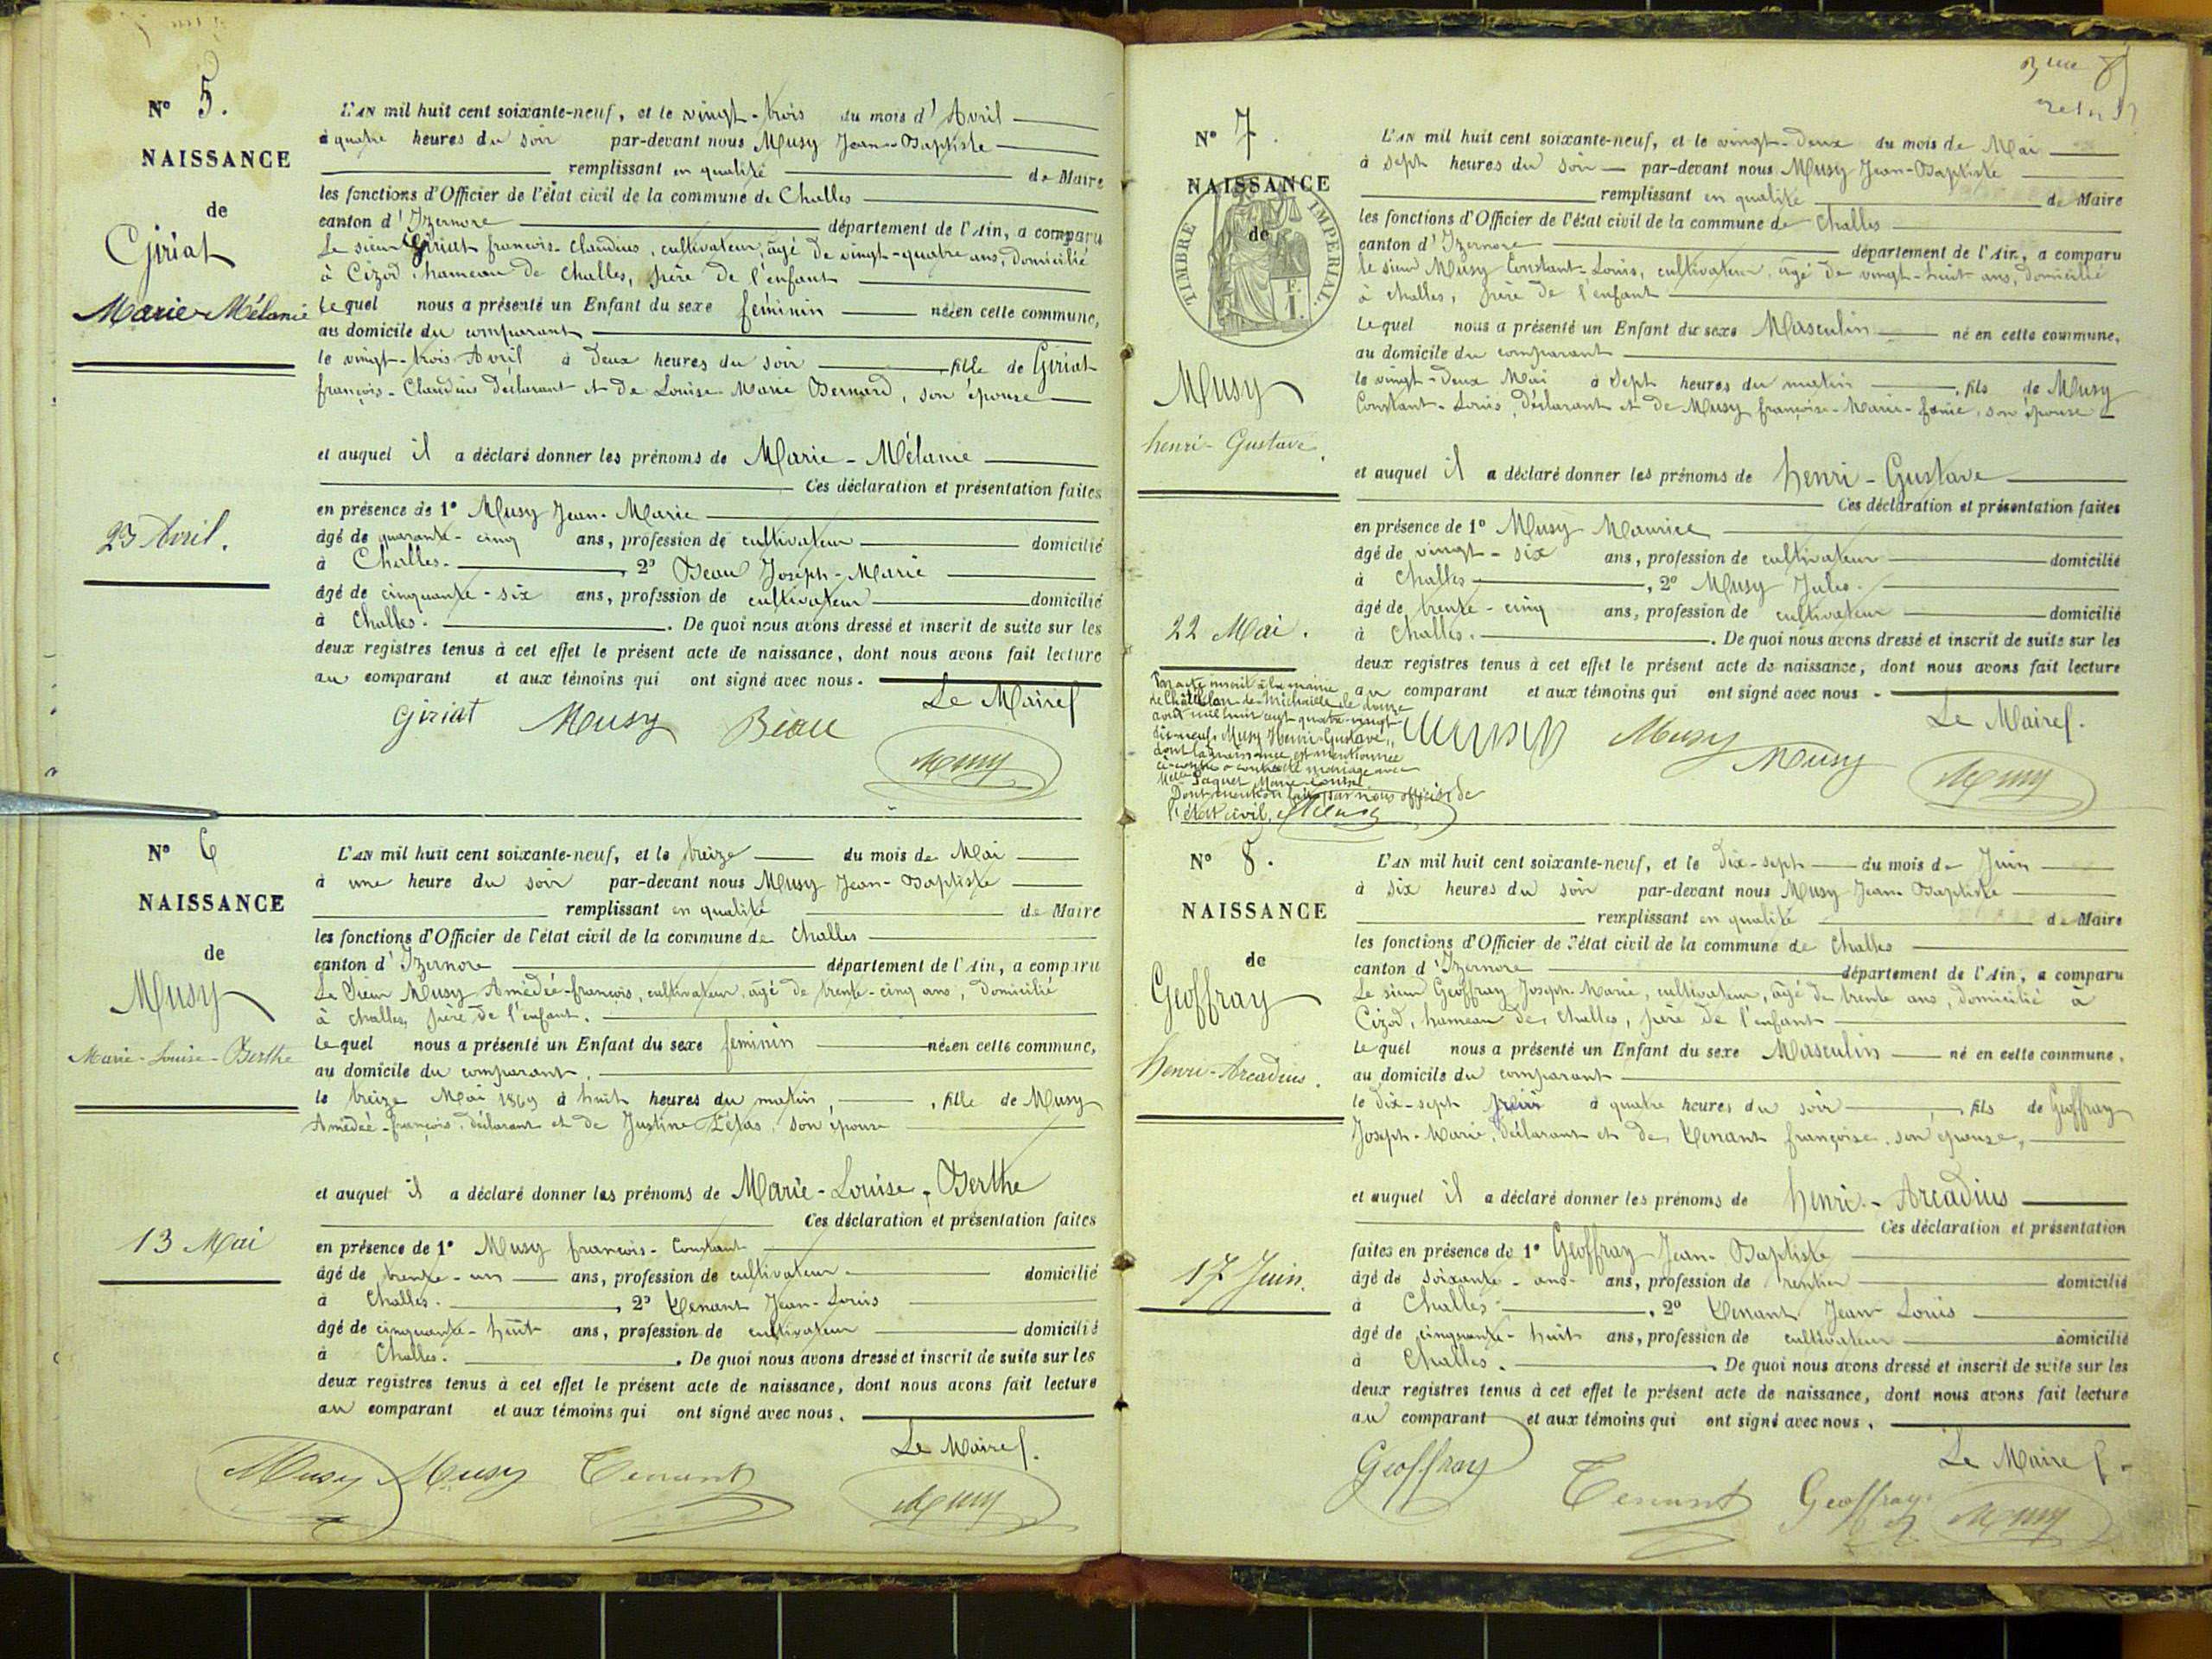 N° 5.
NAISSANCE
de
Giriat
Marie Mélanie
23 Avril.
L'AN mil huit cent soixante-neuf, et le vingt-trois du mois d'Avril
à quatre heures du soir par-devant nous Musy Jean-Baptiste
remplissant en qualité de Maire
les fonctions d'Officier de l'état civil de la commune de Challes
canton d'Izernore département de l'Ain, a comparu
Le sieur Giriat françois-Claudius, cultivateur, âgé de vingt-quatre ans, domicilié
à Cizod, hameau de Challes, père de l'enfant
Lequel nous a présenté un Enfant du sexe féminin née en cette commune,
au domicile du comparant
le vingt-trois Avril à deux heures du soir, fille de Giriat
françois-Claudius déclarant et de Louise Marie Bernard, son épouse
et auquel il a déclaré donner les prénoms de Marie-Mélanie
Ces déclaration et présentation faites
en présence de 1° Musy Jean-Marie
âgé de quarante-cinq ans, profession de cultivateur domicilié
à Challes. , 2° Beau Joseph-Marie
âgé de cinquante-six ans, profession de cultivateur domicilié
à Challes. . De quoi nous avons dressé et inscrit de suite sur les
deux registres tenus à cet effet le présent acte de naissance, dont nous avons fait lecture
au comparant et aux témoins qui ont signé avec nous.
Le Maire
Giriat Musy Beau
Musy
N° 6
NAISSANCE
de
Musy
Marie-Louise-Berthe
13 Mai
L'AN mil huit cent soixante-neuf, et le treize du mois de Mai
à une heure du soir par-devant nous Musy Jean-Baptiste
remplissant en qualité de Maire
les fonctions d'Officier de l'état civil de la commune de Challes
canton d'Izernore département de l'Ain, a comparu
Le Sieur Musy Amédée-françois, cultivateur, âgé de trente-cinq ans, domicilié
à Challes, père de l'enfant.
Lequel nous a présenté un Enfant du sexe feminin née en cette commune,
au domicile du comparant.
le treize Mai 1869 à huit heures du matin, , fille de Musy
Amédée-françois, déclarant et de Justine, son épouse
et auquel il a déclaré donner les prénoms de Marie-Louise-Berthe
Ces déclaration et présentation faites
en présence de 1° Musy françois-Constant
âgé de trente-un ans, profession de cultivateur domicilié
à Challes. , 2° Tenant Jean-Louis
âgé de cinquante-huit ans, profession de cultivateur domicilié
à Challes. . De quoi nous avons dressé et inscrit de suite sur les
deux registres tenus à cet effet le présent acte de naissance, dont nous avons fait lecture
au comparant et aux témoins qui ont signé avec nous.
Le Maire
Musy Musy Tenant
Musy
N° 7.
NAISSANCE
de
TIMBRE IMPERIAL.
Musy
henri-Gustave.
22 Mai.
L'AN mil huit cent soixante-neuf, et le vingt-deux du mois de Mai
à sept heures du soir par-devant nous Musy Jean-Baptiste
remplissant en qualité de Maire
les fonctions d'Officier de l'état civil de la commune de Challes
canton d'Izernore département de l'Ain, a comparu
le sieur Musy Constant-Louis, cultivateur, âgé de vingt-huit ans, domicilié
à Challes, père de l'enfant
Lequel nous a présenté un Enfant du sexe Masculin né en cette commune,
au domicile du comparant
le vingt-deux Mai à Sept heures du matin , fils de Musy
Constant-Louis, déclarant et de Musy françoise-Marie-fanie, son épouse
et auquel il a déclaré donner les prénoms de henri-Gustave
Ces déclaration et présentation faites
en présence de 1° Musy Maurice
âgé de vingt-six ans, profession de cultivateur domicilié
à Challes , 2° Musy Jules.
âgé de trente-cinq ans, profession de cultivateur domicilié
à Challes. . De quoi nous avons dressé et inscrit de suite sur les
deux registres tenus à cet effet le présent acte de naissance, dont nous avons fait lecture
au comparant et aux témoins qui ont signé avec nous.
Le Maire.
Musy Musy
Musy
Par acte inscrit à la mairie
de Châtillon-de-Michaille le douze
août mil huit cent quatre-vingt
dix-neuf, Musy Henri-Gustave,
dont la naissance est mentionnée
ci-contre a contracté mariage avec
Melle Paquet Marie Louise
Dont mention faite par nous officier de
l'état civil,
N° 8.
NAISSANCE
de
Geoffray
henri-Arcadius.
17 Juin.
L'AN mil huit cent soixante-neuf, et le dix-sept du mois de Juin
à six heures du soir par-devant nous Musy Jean-Baptiste
remplissant en qualité de Maire
les fonctions d'Officier de l'état civil de la commune de Challes
canton d'Izernore département de l'Ain, a comparu
Le sieur Geoffray Joseph-Marie, cultivateur, âgé de trente ans, domicilié à
Cizod, hameau de Challes, père de l'enfant
Lequel nous a présenté un Enfant du sexe Masculin né en cette commune,
au domicile du comparant
le dix-sept Juin à quatre heures du soir , fils de Geoffray
Joseph-Marie, déclarant et de Tenant françoise, son épouse,
et auquel il a déclaré donner les prénoms de henri-Arcadius
Ces déclaration et présentation
faites en présence de 1° Geoffray Jean-Baptiste
âgé de soixante-ans- ans, profession de rentier domicilié
à Challes. , 2° Tenant Jean Louis
âgé de cinquante-huit ans, profession de cultivateur domicilié
à Challes. . De quoi nous avons dressé et inscrit de suite sur les
deux registres tenus à cet effet le présent acte de naissance, dont nous avons fait lecture
au comparant et aux témoins qui ont signé avec nous.
Le Maire
Geoffray Tenant Geoffray
Musy